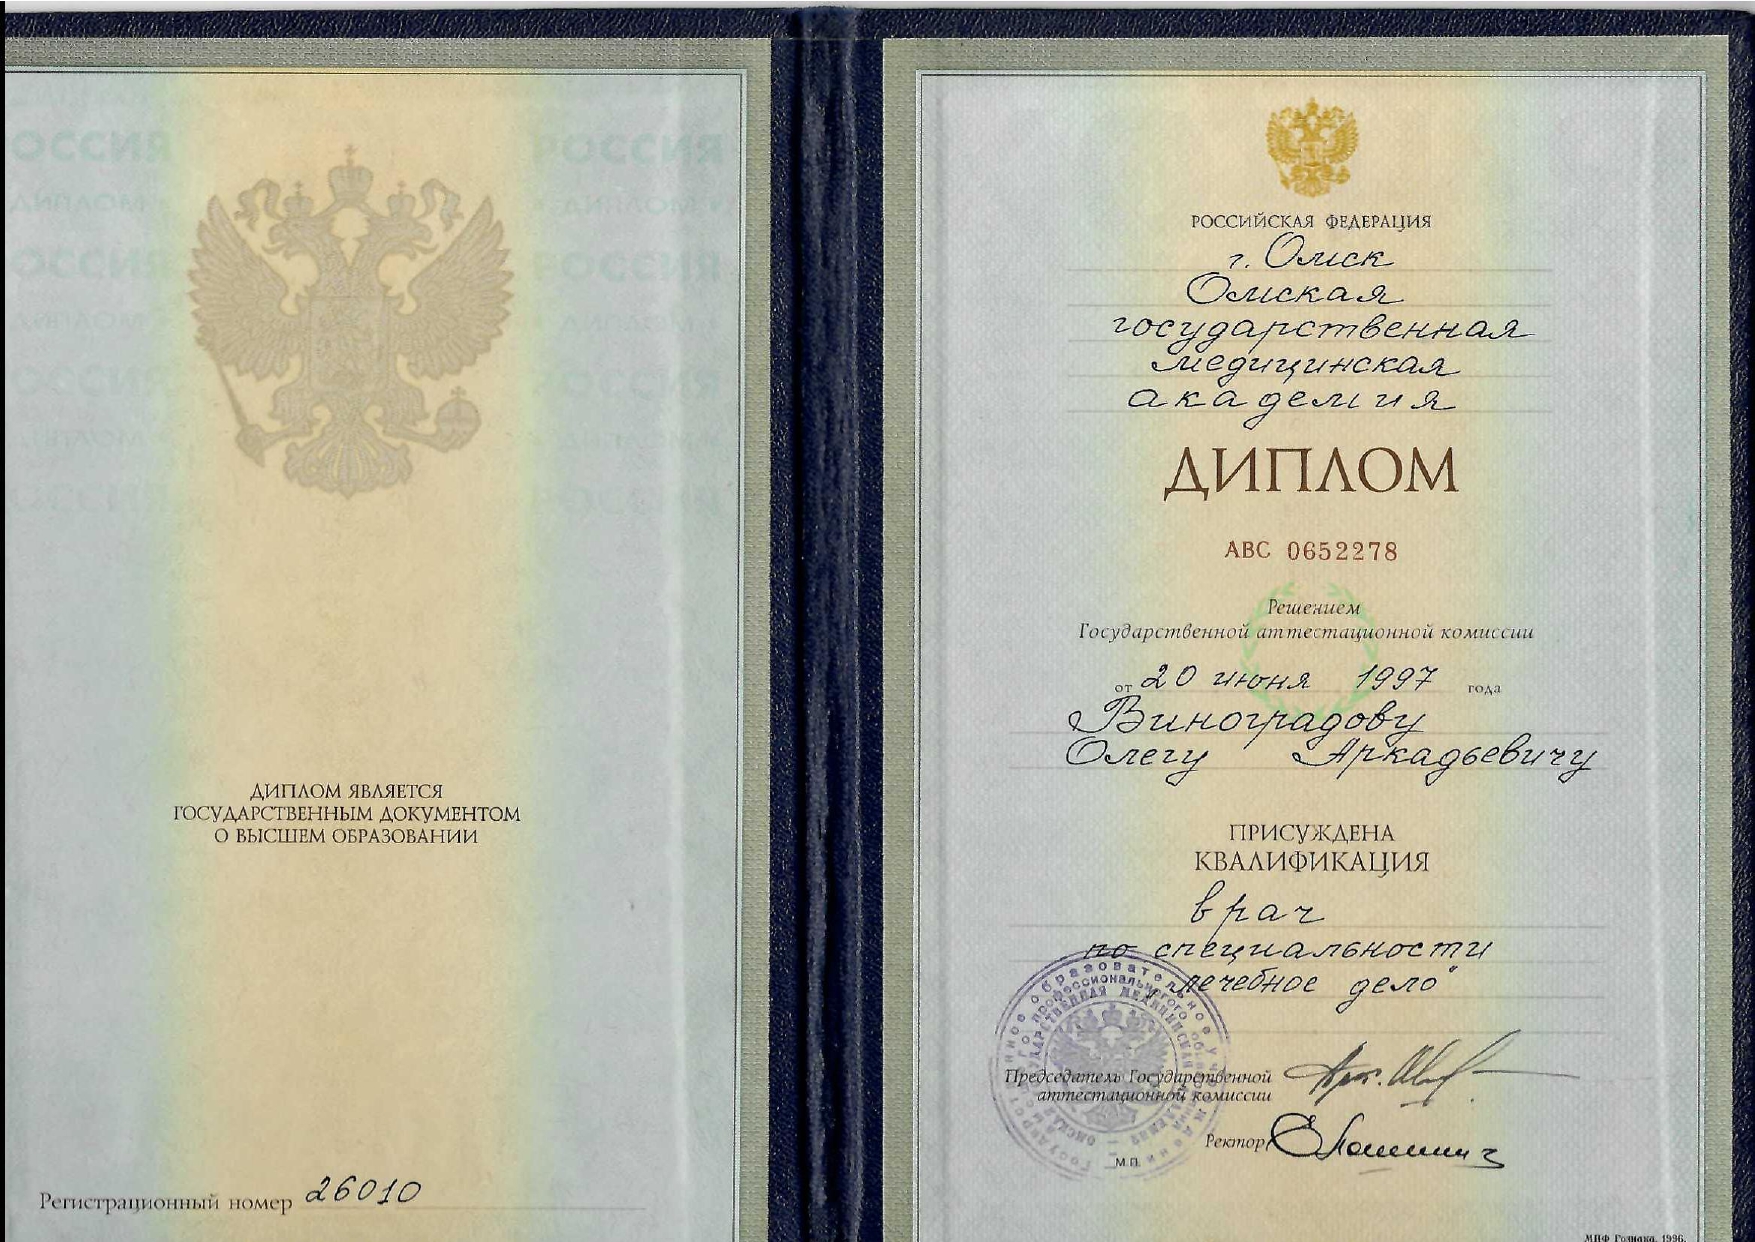 ДИПЛОМ ЯВЛЯЕТСЯ
ГОСУДАРСТВЕННЫМ ДОКУМЕНТОМ
О ВЫСШЕМ ОБРАЗОВАНИИ
Регистрационный номер 26010
РОССИЙСКАЯ ФЕДЕРАЦИЯ
г. Омск
Омская
государственная
медицинская
академия
ДИПЛОМ
АВС 0652278
Решением
Государственной аттестационной комиссии
от 20 июня 1997 года
Виноградову
Олегу Аркадьевичу
ПРИСУЖДЕНА
КВАЛИФИКАЦИЯ
врач
по специальности
„лечебное дело“
Председатель Государственной
аттестационной комиссии
Ректор
М.П.
МПФ Гознака. 1996.